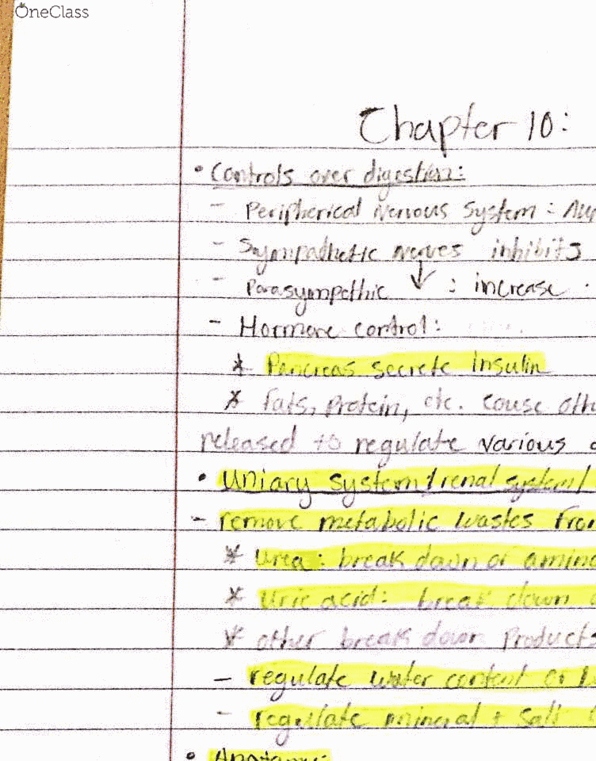 OneClass
Chapter 10:
• Controls over digestion:
- Peripherical nervous system : Au
- Sympathetic nerves inhibits
- Parasympathic ↓ : increase
- Hormone control:
* Pancreas secrete insulin
* Fats, protein, etc. cause oth
released to regulate various
• Uniary system/renal system/
- remove metabolic wastes from
* Urea : break down of amino
* Uric acid: break down
* other break down products
- regulate water content of b
- regulate mineral + salt
• Anatomy: